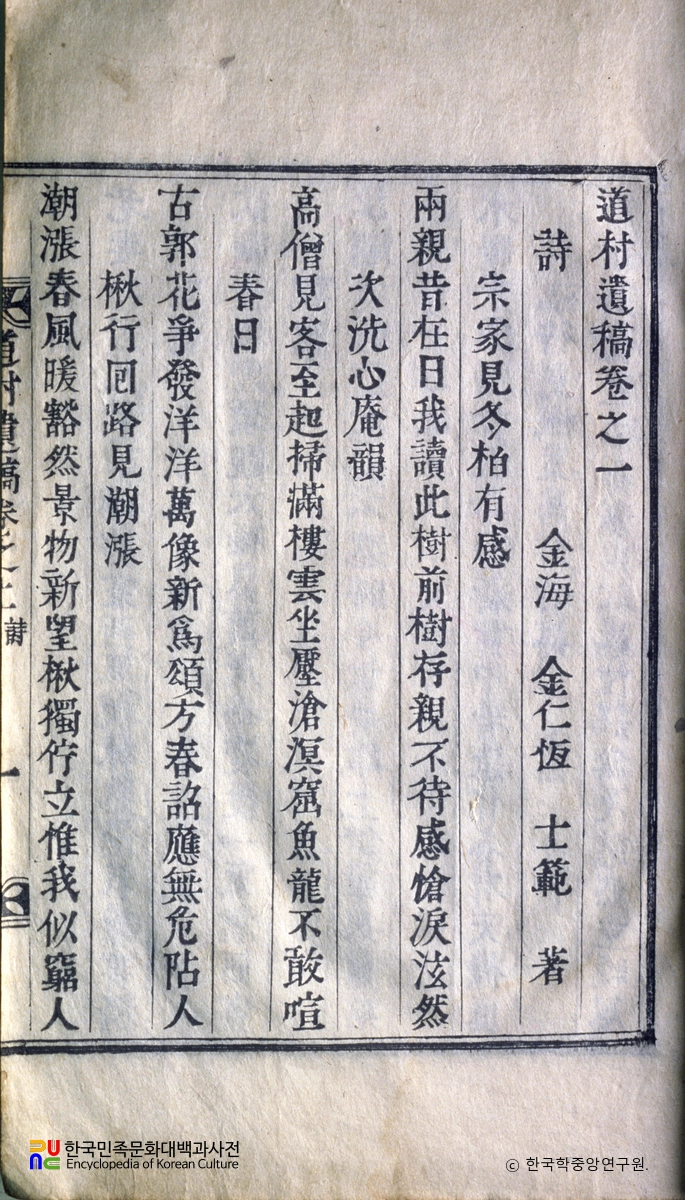 道村遺稿卷之一
詩
金海 金仁恆 士範 著
宗家見冬柏有感
兩親昔在日我讀此樹前樹存親不待感愴淚泫然
次洗心庵韻
高僧見客至起掃滿樓雲坐壓滄溟窟魚龍不敢喧
春日
古郭花爭發洋洋萬像新爲頌方春詔應無危阽人
楸行回路見潮漲
潮漲春風暖豁然景物新望楸獨佇立惟我似窮人
道村遺稿卷之一 詩
一
한국민족문화대백과사전
Encyclopedia of Korean Culture
© 한국학중앙연구원.